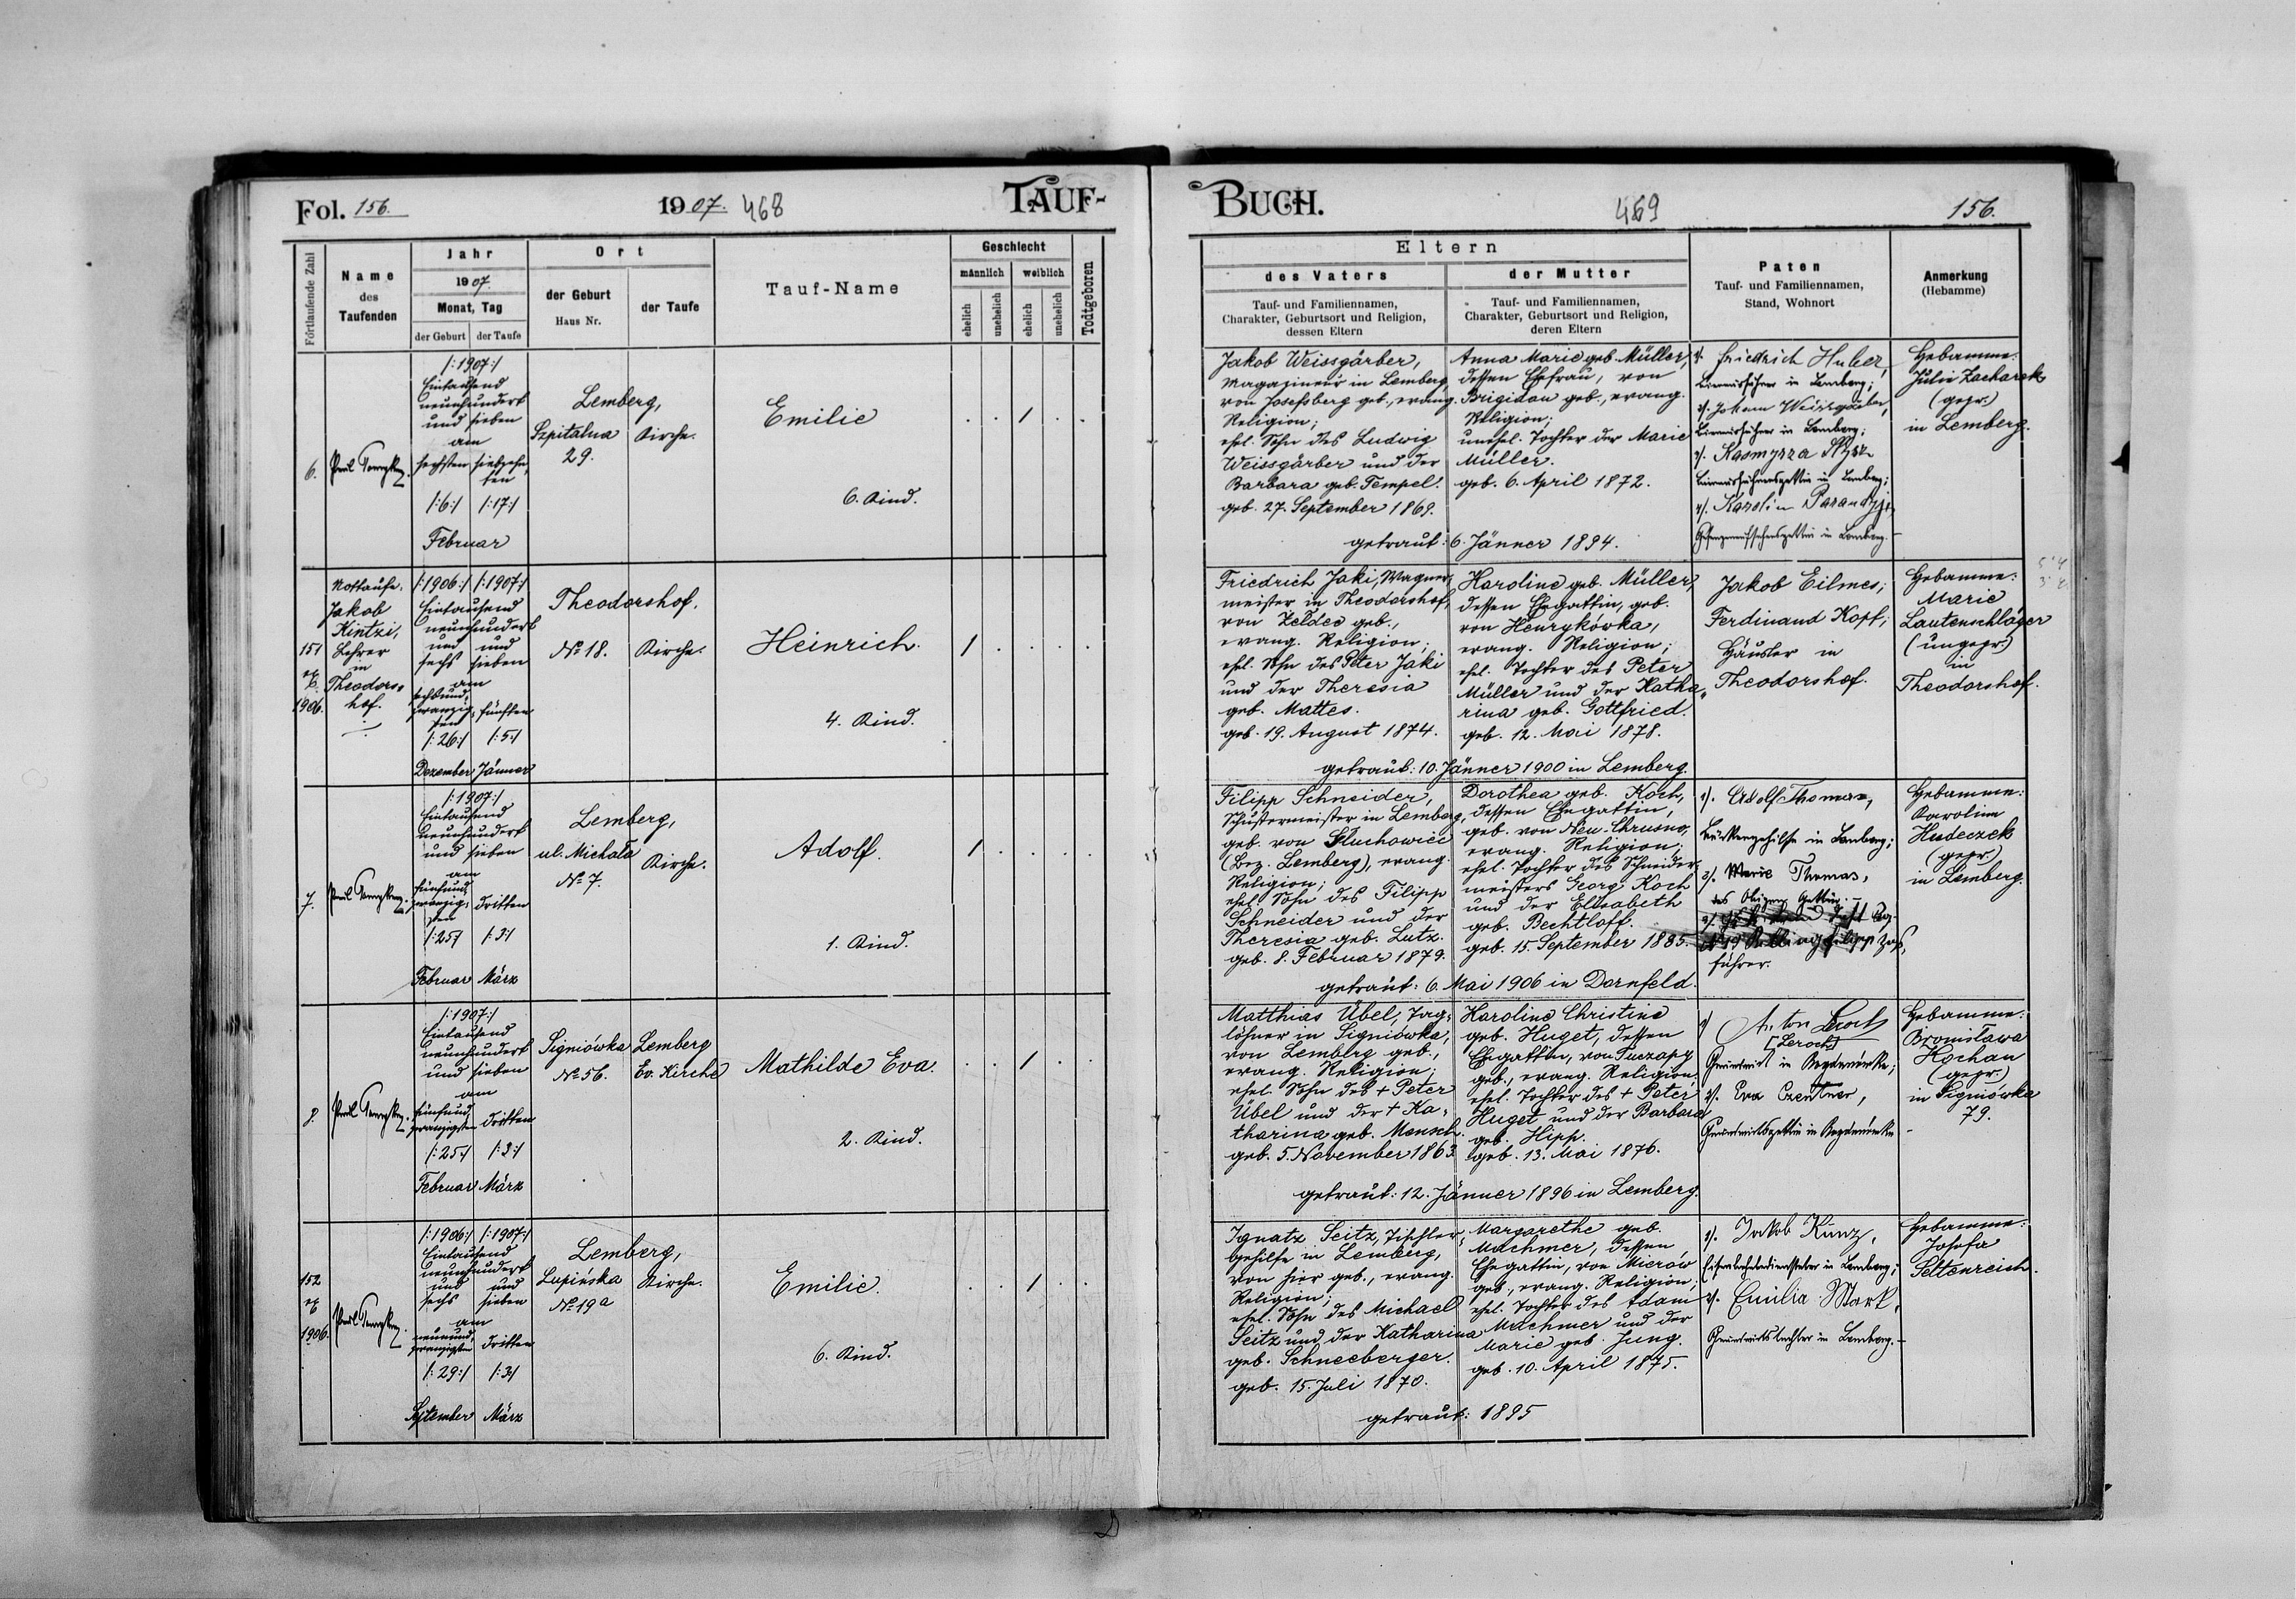 Fol. 156.
1907. 468
TAUF-
Fortlaufende Zahl
Name
des
Taufenden
Jahr
1907.
Monat, Tag
der Geburt
der Taufe
Ort
der Geburt
Haus Nr.
der Taufe
Tauf-Name
Geschlecht
männlich
weiblich
ehelich
unehelich
ehelich
unehelich
Todtgeboren
6.
/:1907:/
Eintausend
neunhundert
und sieben
am
sechsten siebzehn-
ten
/:6:/ /:17:/
Februar
Lemberg,
Szpitalna
29.
Kirche.
Emilie
6. Kind.
1
151
ex
1906.
Nottaufe.
Jakob
Kintzi,
Lehrer
in
Theodors-
hof.
/:1906:/ /:1907:/
Eintausend
neunhundert
und und
sechs sieben
am
sechsund-
zwanzig- fünften
sten
/:26:/ /:5:/
Dezember Jänner
Theodorshof.
No 18.
Kirche.
Heinrich.
4. Kind.
1
7.
/:1907:/
Eintausend
neunhundert
und sieben
am
fünfund-
zwanzig- dritten
sten
/:25:/ /:3:/
Februar März
Lemberg,
ul. Michała
No 7.
Kirche.
Adolf.
1. Kind.
1
8.
/:1907:/
Eintausend
neunhundert
und sieben
am
fünfund-
zwanzigsten dritten
/:25:/ /:3:/
Februar März
Signiówka
No 56.
Lemberg
Ev. Kirche
Mathilde Eva.
2. Kind.
1
152
ex
1906.
/:1906:/ /:1907:/
Eintausend
neunhundert
und und
sechs sieben
am
neunund-
zwanzigsten dritten
/:29:/ /:3:/
September März
Lemberg,
Lupińska
No 19a
Kirche.
Emilie.
6. Kind.
1
BUCH.
469
156.
Eltern
des Vaters
Tauf- und Familiennamen,
Charakter, Geburtsort und Religion,
dessen Eltern
der Mutter
Tauf- und Familiennamen,
Charakter, Geburtsort und Religion,
deren Eltern
Paten
Tauf- und Familiennamen,
Stand, Wohnort
Anmerkung
(Hebamme)
Jakob Weissgärber,
Magazineur in Lemberg,
von Josefsberg geb., evang.
Religion;
ehel. Sohn des Ludwig
Weissgärber und der
Barbara geb. Tempel.
geb. 27. September 1869.
Anna Marie geb. Müller,
dessen Ehefrau, von
Brigidau geb., evang.
Religion;
unehel. Tochter der Marie
Müller.
geb. 6. April 1872.
getraut: 6. Jänner 1894.
Friedrich Huber,
in Lemberg;
Johann Weissgärber,
in Lemberg;
in Lemberg;
Karolin
in Lemberg.
Hebamme:
Julie Zacharek
(gepr.)
in Lemberg.
Friedrich Jaki, Wagner-
meister in Theodorshof,
von Zeldec geb.,
evang. Religion;
ehel. Sohn des Peter Jaki
und der Theresia
geb. Mattes.
geb. 19. August 1874.
Karoline geb. Müller,
dessen Ehegattin, geb.
von Henrykówka,
evang. Religion;
ehel. Tochter des Peter
Müller und der Katha-
rina geb. Gottfried.
geb. 12. Mai 1878.
getraut: 10. Jänner 1900 in Lemberg.
Jakob Eilmes;
Ferdinand Kopf;
Häusler in
Theodorshof.
Hebamme:
Marie
Lautenschläger
(ungepr.)
in
Theodorshof.
Filipp Schneider,
Schustermeister in Lemberg,
geb. von Głuchowice
(Bez. Lemberg), evang.
Religion;
ehel. Sohn des Filipp
Schneider und der
Theresia geb. Lutz.
geb. 8. Februar 1879.
Dorothea geb. Koch,
dessen Ehegattin,
geb. von Neu-Chrusno,
evang. Religion;
ehel. Tochter des Schneider-
meisters Georg Koch
und der Elisabeth
geb. Bechtloff.
geb. 15. September 1885.
getraut: 6. Mai 1906 in Dornfeld.
1/. Adolf Thomas,
in Lemberg;
2/. Marie Thomas,
des Obigen Gattin.-
führer.
Hebamme:
Karoline
Hudeczek
(gepr.)
in Lemberg.
Matthias Übel, Tag-
löhner in Signiówka,
von Lemberg geb.,
evang. Religion;
ehel. Sohn des + Peter
Übel und der + Ka-
tharina geb. Mensch.
geb. 5. November 1863.
Karoline Christine
geb. Huget, dessen
Ehegattin, von Puczapy
geb., evang. Religion.
ehel. Tochter des + Peter
Huget und der Barbara
geb. Hipp.
geb. 13. Mai 1876.
getraut: 12. Jänner 1896 in Lemberg.
1/ Anton Leroch
[Leroch]
Grundwirt in
2/. Eva Czentner,
Grundwirtsgattin in
Hebamme:
Bronisława
Kochan
(gepr.)
in Signiówka
79.
Ignatz Seitz, Tischler-
gehilfe in Lemberg,
von hier geb., evang.
Religion;
ehel. Sohn des Michael
Seitz und der Katharina
geb. Schneeberger.
geb. 15. Juli 1870.
Margarethe geb.
Machmer, dessen
Ehegattin, von Mierów
geb., evang. Religion;
ehel. Tochter des Adam
Machmer und der
Marie geb. Jung.
geb. 10. April 1875.
getraut: 1895
1/. Jakob Kunz,
Eisenbahnbediensteter in Lemberg;
2/. Emilia Mark,
Grundwirtstochter in Lemberg.-
Hebamme:
Josefa
Seltenreich.